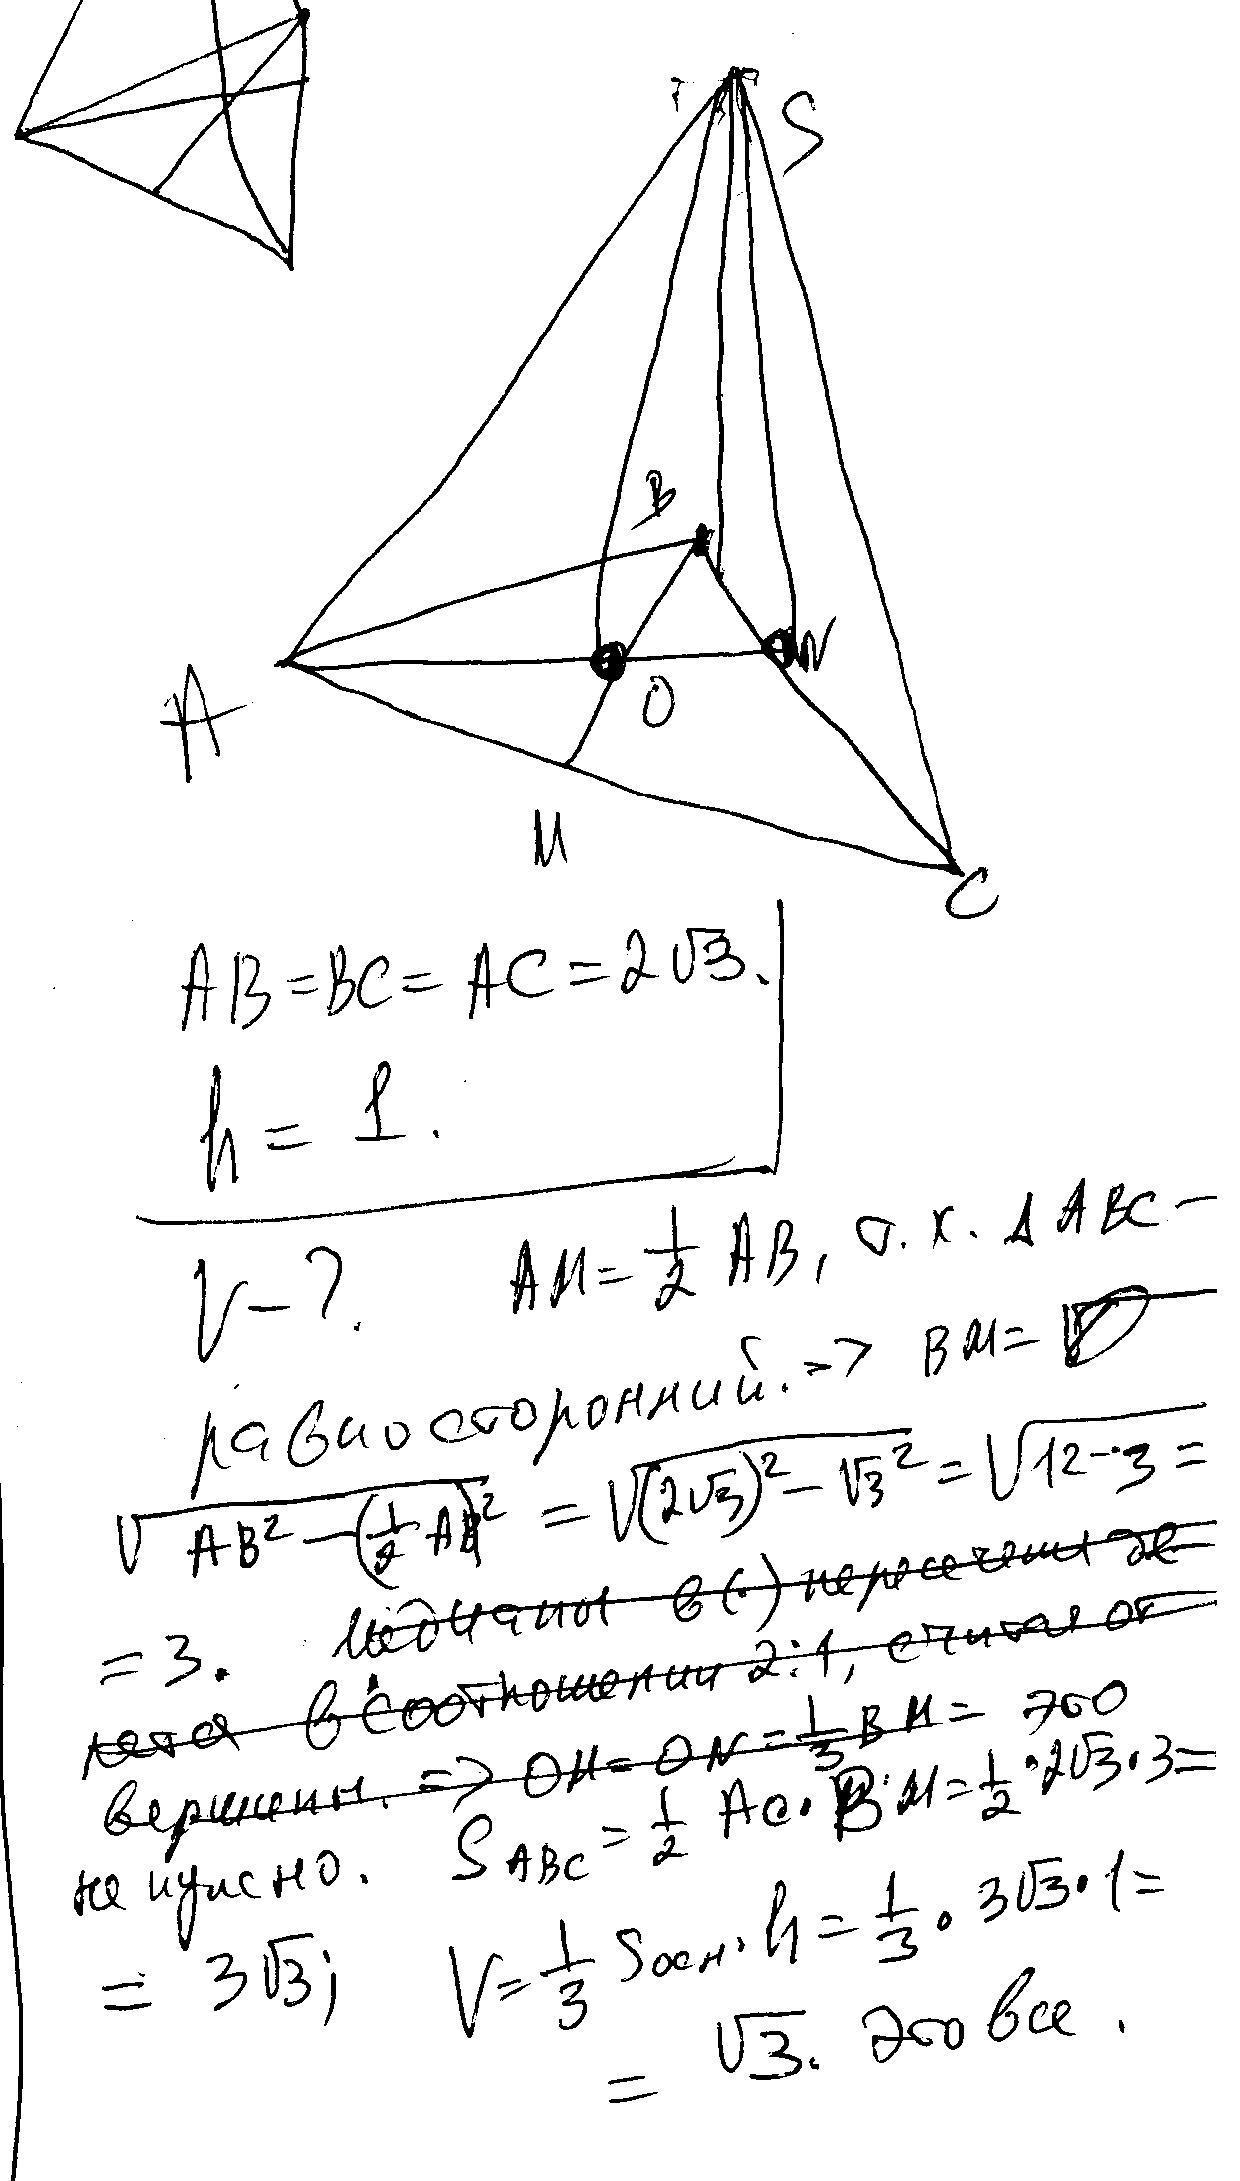 S
B
N
O
A
M
C
AB=BC=AC=2√3.
h= 1.
V-?. AM=1/2 AB, т.к. Δ ABC-
равносторонний. => BM=
√AB²-(1/2 AB)² = √(2√3)²-√3² = √12-3 =
=3. медианы в (.) пересечения де
лятся в соотношении 2:1, считая от
вершины. => OM=ON=1/3 BM= это
не нужно. S ABC = 1/2 AC·BM=1/2·2√3·3=
= 3√3; V=1/3 Sосн·h=1/3·3√3·1=
= √3. Это все.